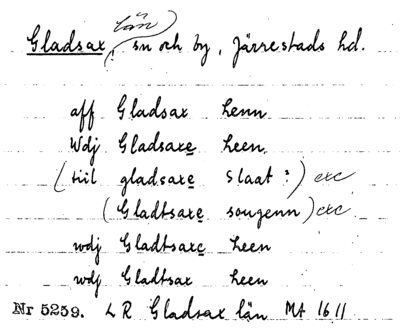 län
Gladsax, sn och by, Järrestads hd.
aff Gladsax henn
Wdj Gladsaxe heen
(tiil gladsaxe Slaat?) exc
(Gladtsaxe sougenn) exc
wdj Gladtsaxe heen
wdj Gladtsax heen
Nr 5259. LR Gladsax län MA 1611